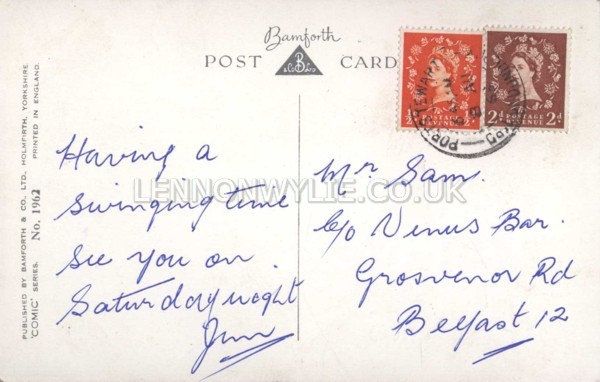 Bamforth
POST CARD
B
& Co Ltd
PUBLISHED BY BAMFORTH & CO. LTD., HOLMFIRTH, YORKSHIRE
'COMIC' SERIES. No. 1962 PRINTED IN ENGLAND.
Having a
swinging time
see you on
Saturday night
Jim
½d POSTAGE REVENUE ½d
2d POSTAGE REVENUE 2d
PORTSTEWART
Mr Sam.
c/o Venus Bar.
Grosvenor Rd
Belfast 12
LENNONWYLIE.CO.UK